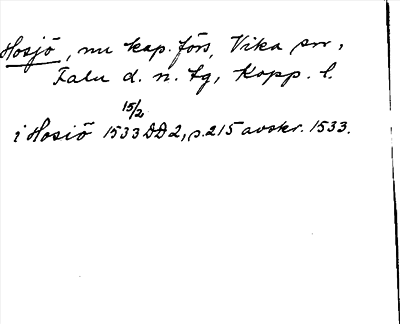 Hosjö, nu kap. förs, Vika sn,
Falu d. n. tg, Kopp. l.
15/2
i Hosiö 1533 DD2, s. 215 avskr. 1533.